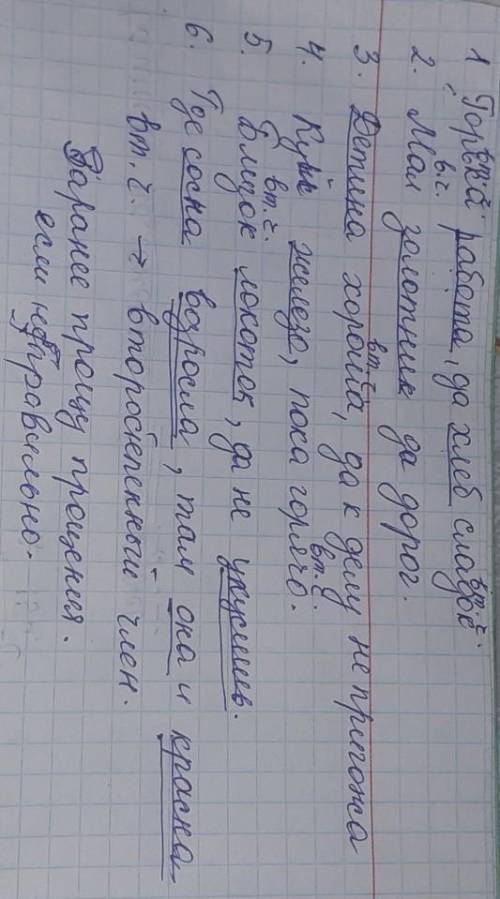 1. Горька работа, да хлеб сладок.
вт.ч. вт.ч.
2. Мал золотник да дорог.
вт.ч.
3. Детина хороша, да к делу не пригожа
вт.ч.
4. Куй железо, пока горячо.
вт.ч.
5. Близок локоток, да не укусишь.
вт.ч.
6. Где сосна взросла, там она и красна.
вт.ч. → второстепенный член.
Заранее прошу прощения.
если неправильно.